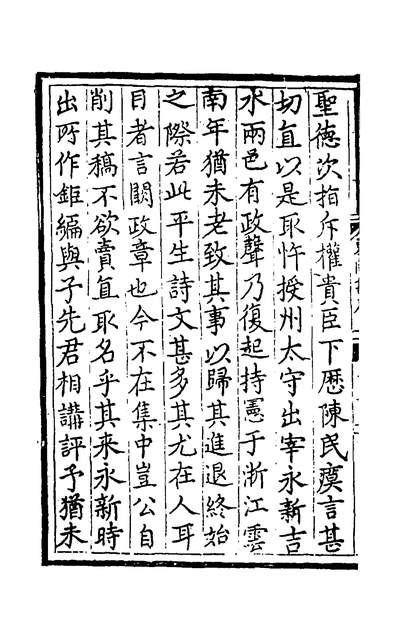 聖德次指斥權貴臣下歷陳民瘼言甚
切直以是取忤授州太守出宰永新吉
水兩邑有政聲乃復起持憲于浙江雲
南年猶未老致其事以歸其進退終始
之際若此平生詩文甚多其尤在人耳
目者言闕政章也今不在集中豈公自
削其稿不欲賣直取名乎其来永新時
出所作鉅編與予先君相講評予猶未